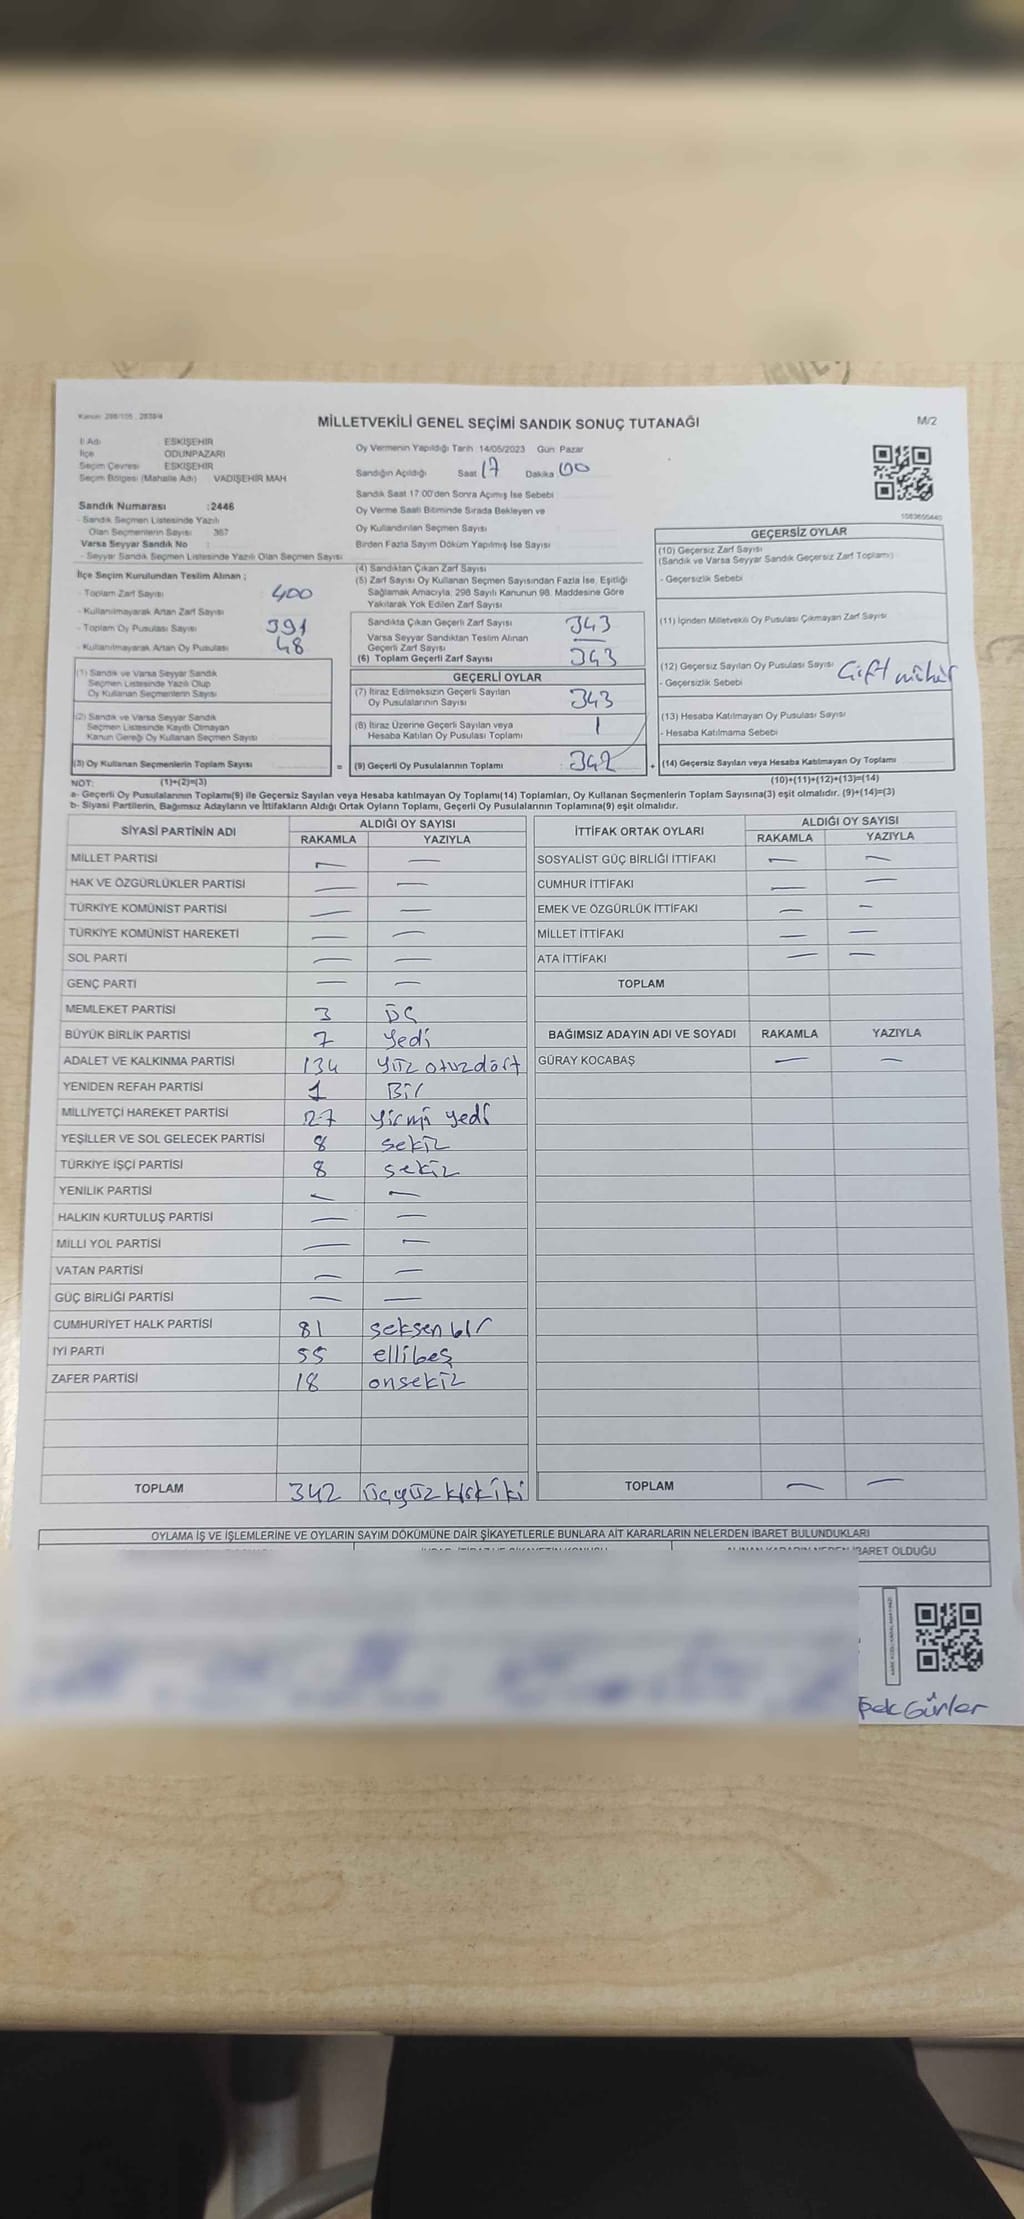 Kanun: 298/105 , 2839/4
MİLLETVEKİLİ GENEL SEÇİMİ SANDIK SONUÇ TUTANAĞI
M/2
İl Adı ESKİŞEHİR
İlçe ODUNPAZARI
Seçim Çevresi ESKİŞEHİR
Seçim Bölgesi (Mahalle Adı) VADİŞEHİR MAH
Sandık Numarası :2446
- Sandık Seçmen Listesinde Yazılı
Olan Seçmenlerin Sayısı 367
Varsa Seyyar Sandık No :
- Seyyar Sandık Seçmen Listesinde Yazılı Olan Seçmen Sayısı
Oy Vermenin Yapıldığı Tarih 14/05/2023 Gün: Pazar
Sandığın Açıldığı Saat 17 Dakika 00
Sandık Saat 17:00'den Sonra Açılmış İse Sebebi
Oy Verme Saati Bitiminde Sırada Bekleyen ve
Oy Kullandırılan Seçmen Sayısı
Birden Fazla Sayım Döküm Yapılmış İse Sayısı
İlçe Seçim Kurulundan Teslim Alınan ;
- Toplam Zarf Sayısı : 400
- Kullanılmayarak Artan Zarf Sayısı
- Toplam Oy Pusulası Sayısı : 391
- Kullanılmayarak Artan Oy Pusulası 48
(1) Sandık ve Varsa Seyyar Sandık
Seçmen Listesinde Yazılı Olup
Oy Kullanan Seçmenlerin Sayısı
(2) Sandık ve Varsa Seyyar Sandık
Seçmen Listesinde Kayıtlı Olmayan
Kanun Gereği Oy Kullanan Seçmen Sayısı
(3) Oy Kullanan Seçmenlerin Toplam Sayısı
(4) Sandıktan Çıkan Zarf Sayısı
(5) Zarf Sayısı Oy Kullanan Seçmen Sayısından Fazla İse, Eşitliği
Sağlamak Amacıyla, 298 Sayılı Kanunun 98. Maddesine Göre
Yakılarak Yok Edilen Zarf Sayısı
Sandıkta Çıkan Geçerli Zarf Sayısı 343
Varsa Seyyar Sandıktan Teslim Alınan
Geçerli Zarf Sayısı
(6) Toplam Geçerli Zarf Sayısı 343
GEÇERLİ OYLAR
(7) İtiraz Edilmeksizin Geçerli Sayılan
Oy Pusulalarının Sayısı 343
(8) İtiraz Üzerine Geçerli Sayılan veya
Hesaba Katılan Oy Pusulası Toplamı 1
= (9) Geçerli Oy Pusulalarının Toplamı 342
GEÇERSİZ OYLAR
(10) Geçersiz Zarf Sayısı
(Sandık ve Varsa Seyyar Sandık Geçersiz Zarf Toplamı)
- Geçersizlik Sebebi
(11) İçinden Milletvekili Oy Pusulası Çıkmayan Zarf Sayısı
(12) Geçersiz Sayılan Oy Pusulası Sayısı Çift mühür
- Geçersizlik Sebebi
(13) Hesaba Katılmayan Oy Pusulası Sayısı
- Hesaba Katılmama Sebebi
+ (14) Geçersiz Sayılan veya Hesaba Katılmayan Oy Toplamı
NOT: (1)+(2)=(3) (10)+(11)+(12)+(13)=(14)
a- Geçerli Oy Pusulalarının Toplamı(9) ile Geçersiz Sayılan veya Hesaba katılmayan Oy Toplamı(14) Toplamları, Oy Kullanan Seçmenlerin Toplam Sayısına(3) eşit olmalıdır. (9)+(14)=(3)
b- Siyasi Partilerin, Bağımsız Adayların ve İttifakların Aldığı Ortak Oyların Toplamı, Geçerli Oy Pusulalarının Toplamına(9) eşit olmalıdır.
SİYASİ PARTİNİN ADI ALDIĞI OY SAYISI
RAKAMLA YAZIYLA
MİLLET PARTİSİ — —
HAK VE ÖZGÜRLÜKLER PARTİSİ — —
TÜRKİYE KOMÜNİST PARTİSİ — —
TÜRKİYE KOMÜNİST HAREKETİ — —
SOL PARTİ — —
GENÇ PARTİ — —
MEMLEKET PARTİSİ 3 üç
BÜYÜK BİRLİK PARTİSİ 7 yedi
ADALET VE KALKINMA PARTİSİ 134 yüz otuzdört
YENİDEN REFAH PARTİSİ 1 Bir
MİLLİYETÇİ HAREKET PARTİSİ 27 yirmi yedi
YEŞİLLER VE SOL GELECEK PARTİSİ 8 sekiz
TÜRKİYE İŞÇİ PARTİSİ 8 sekiz
YENİLİK PARTİSİ — —
HALKIN KURTULUŞ PARTİSİ — —
MİLLİ YOL PARTİSİ — —
VATAN PARTİSİ — —
GÜÇ BİRLİĞİ PARTİSİ — —
CUMHURİYET HALK PARTİSİ 81 seksen bir
İYİ PARTİ 55 ellibeş
ZAFER PARTİSİ 18 onsekiz
TOPLAM 342 üçyüz kırk iki
İTTİFAK ORTAK OYLARI ALDIĞI OY SAYISI
RAKAMLA YAZIYLA
SOSYALİST GÜÇ BİRLİĞİ İTTİFAKI — —
CUMHUR İTTİFAKI — —
EMEK VE ÖZGÜRLÜK İTTİFAKI — —
MİLLET İTTİFAKI — —
ATA İTTİFAKI — —
TOPLAM
BAĞIMSIZ ADAYIN ADI VE SOYADI RAKAMLA YAZIYLA
GÜRAY KOCABAŞ — —
TOPLAM — —
OYLAMA İŞ VE İŞLEMLERİNE VE OYLARIN SAYIM DÖKÜMÜNE DAİR ŞİKAYETLERLE BUNLARA AİT KARARLARIN NELERDEN İBARET BULUNDUKLARI
İBARET OLDUĞU
Gürler